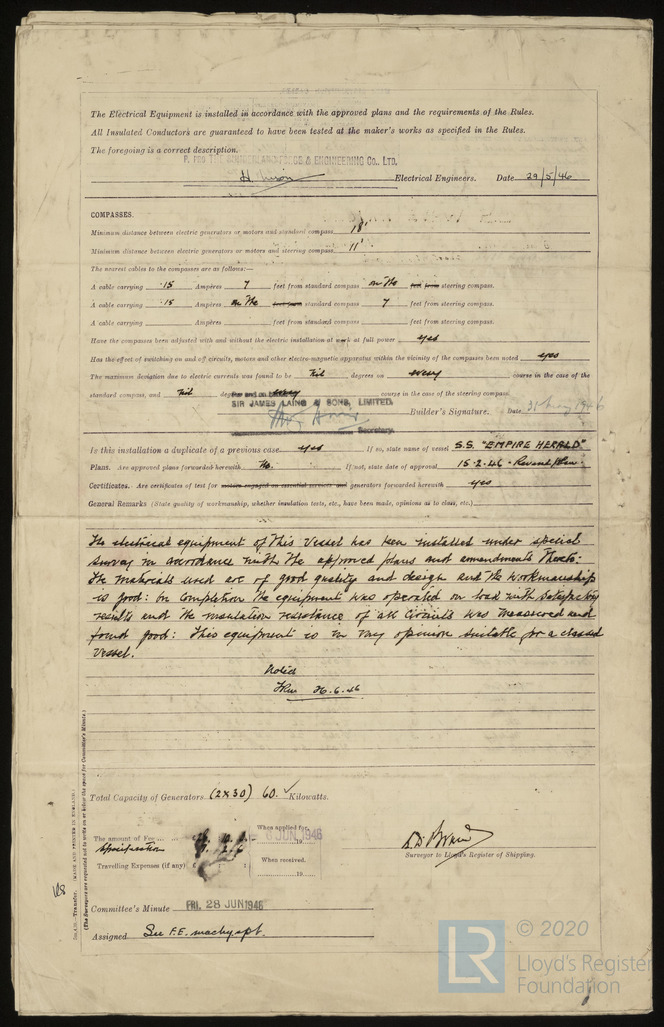 The Electrical Equipment is installed in accordance with the approved plans and the requirements of the Rules.
All Insulated Conductors are guaranteed to have been tested at the maker's works as specified in the Rules.
The foregoing is a correct description.
& ENGINEERING Co., LTD.
Electrical Engineers. Date 29/5/46
COMPASSES.
Minimum distance between electric generators or motors and standard compass 18'
Minimum distance between electric generators or motors and steering compass 11'
The nearest cables to the compasses are as follows:—
A cable carrying .15 Ampères 7 feet from standard compass on the feet from steering compass.
A cable carrying .15 Ampères on the standard compass 7 feet from steering compass.
A cable carrying Ampères feet from standard compass feet from steering compass.
Have the compasses been adjusted with and without the electric installation at work at full power yes
Has the effect of switching on and off circuits, motors and other electro-magnetic apparatus within the vicinity of the compasses been noted yes
The maximum deviation due to electric currents was found to be Nil degrees on every course in the case of the
standard compass, and Nil degrees on every course in the case of the steering compass.
SIR JAMES LAING & SONS, LIMITED.
Builder's Signature. Date 31 May 1946
Secretary.
Is this installation a duplicate of a previous case yes If so, state name of vessel S.S. "EMPIRE HERALD"
Plans. Are approved plans forwarded herewith No. If not, state date of approval 15-2-46 - Revised Plan.
Certificates. Are certificates of test for motors engaged on essential services and generators forwarded herewith yes
General Remarks (State quality of workmanship, whether insulation tests, etc., have been made, opinions as to class, etc.)
The electrical equipment of this vessel has been installed under special
survey in accordance with the approved plans and amendments thereto.
The materials used are of good quality and design and the workmanship
is good: On completion the equipment was operated on load with satisfactory
results and the insulation resistance of all circuits was measured and
found good: This equipment is in my opinion suitable for a classed
vessel.
Noted
26.6.46
Total Capacity of Generators (2x30) 60. Kilowatts.
The amount of Fee
When applied for,
JUN 1946
19
Specification
Travelling Expenses (if any) £ : :
When received,
19
Surveyor to Lloyd's Register of Shipping.
Committee's Minute FRI. 28 JUN 1946
Assigned See F.E. machy. rpt.
Transfer. (MADE AND PRINTED IN ENGLAND.)
(The Surveyors are requested not to write on or below the space for Committee's Minute.)
LR © 2020
Lloyd's Register
Foundation